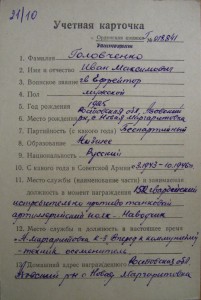 21/10
Учетная карточка
Орденская книжка
1. Фамилия Головченко
2. Имя и отчество Иван Максимович
3. Воинское звание гв Ефрейтор
4. Пол мужской
5. Год рождения 1925
6. Место рождения Ростовская обл, Азовский
р-н, с Новая Маргаритовка
7. Партийность (с какого года) Беспартийный
8. Образование Низшее
9. Национальность Русский
10. С какого года в Советской Армии с 3.1943-10.1946г
11. Место службы (наименование части) и занимаемая
должность в момент награждения гвардейский
истребительно противо танковый
артиллерийский полк - Наводчик
12. Место службы и должность в настоящее время
Маргаритовка к-з Вперед к коммунизму
13. Домашний адрес награжденного Ростовская обл
Азовский р-н с Новая Маргаритовка